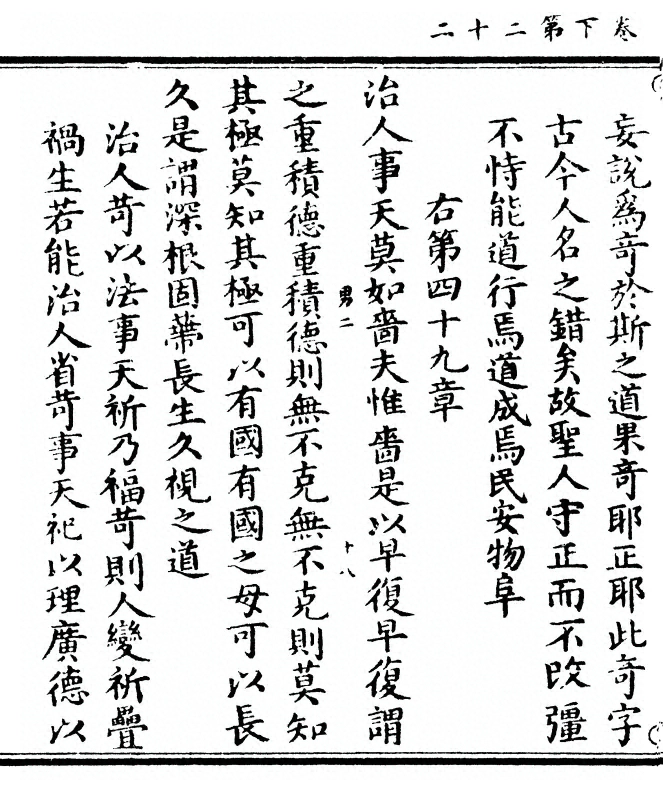 卷下第二十二
妄說爲奇於斯之道果奇耶正耶此奇字
古今人名之錯矣故聖人守正而不改彊
不恃能道行焉道成焉民安物阜
右第四十九章
治人事天莫如嗇夫惟嗇是以早復早復謂
男二
十八
之重積德重積德則無不克無不克則莫知
其極莫知其極可以有國有國之母可以長
久是謂深根固蔕長生久視之道
治人苛以法事天祈乃福苛則人變祈疊
禍生若能治人省苛事天祀以理廣德以